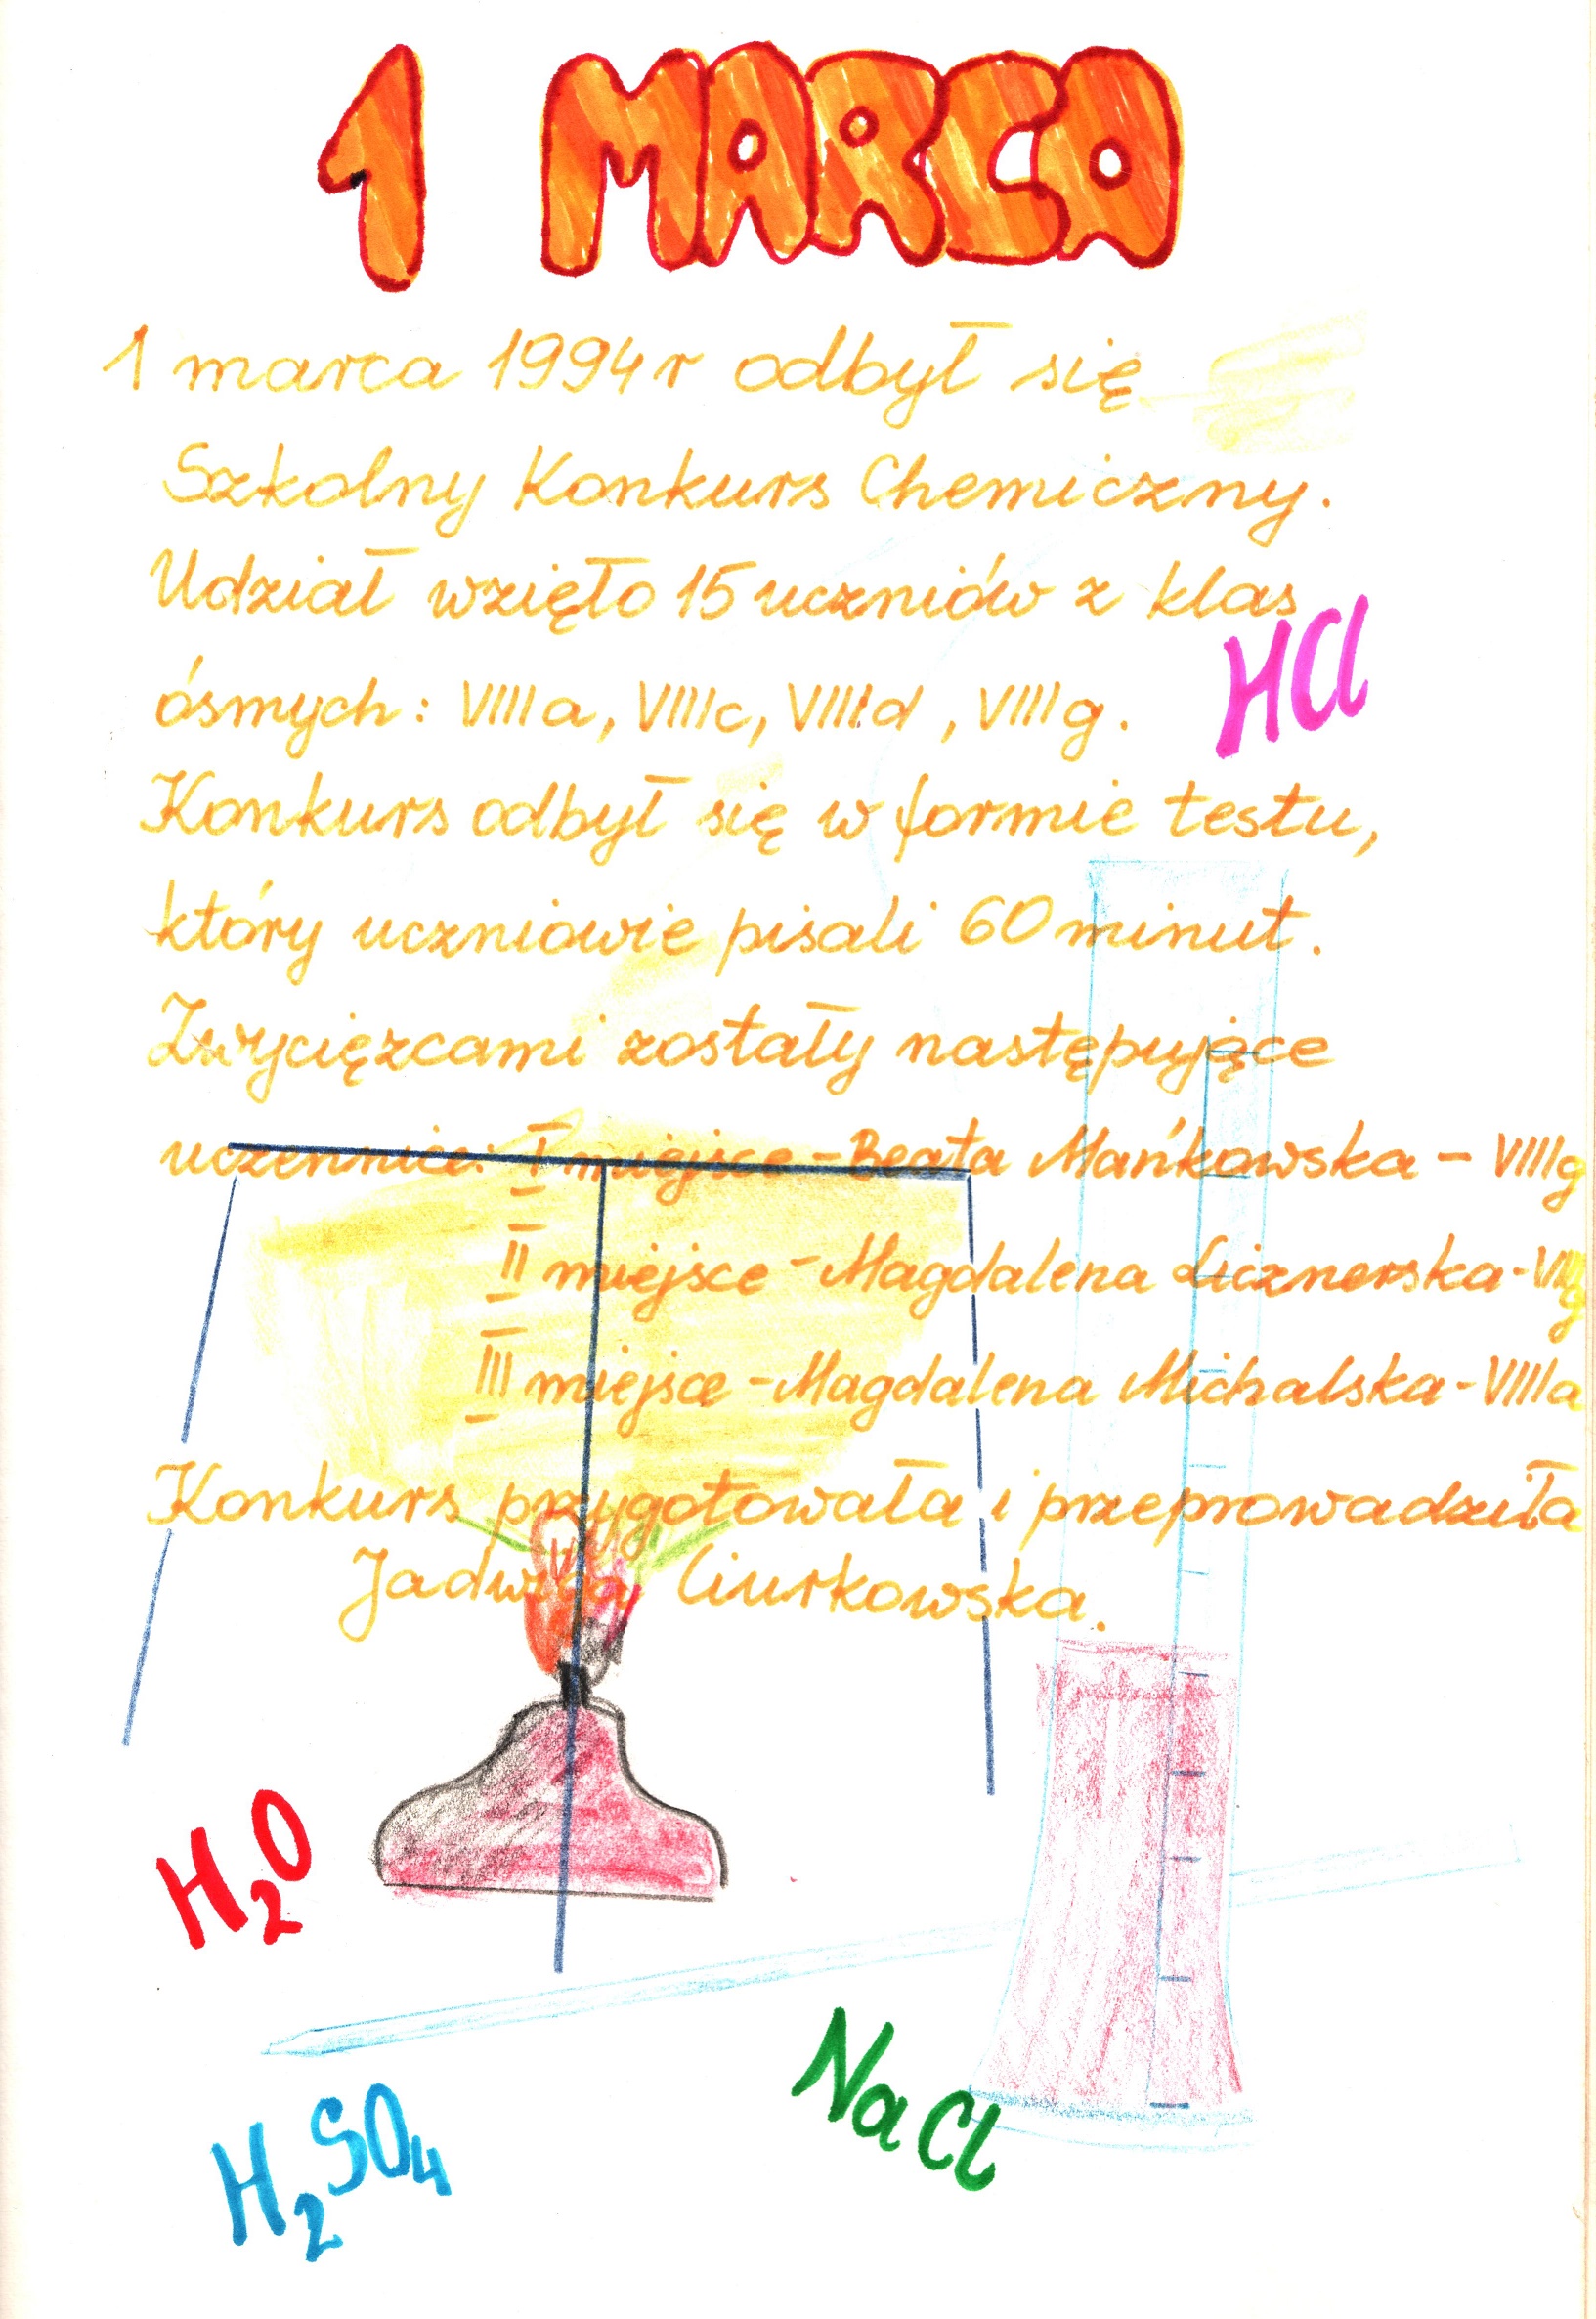 1 MARCA
1 marca 1994r odbył się
Szkolny Konkurs Chemiczny.
Udział wzięło 15 uczniów z klas
ósmych: VIIIa, VIIIc, VIIId, VIIIg.
HCl
Konkurs odbył się w formie testu,
który uczniowie pisali 60 minut.
Zwyciężcami zostały następujące
uczennice: I miejsce - Beata Mańkowska - VIIIg
II miejsce - Magdalena Licznerska - VIIIg
III miejsce - Magdalena Michalska - VIIIa
Konkurs przygotowała i przeprowadziła
Jadwiga Ciurkowska.
H₂O
NaCl
H₂SO₄